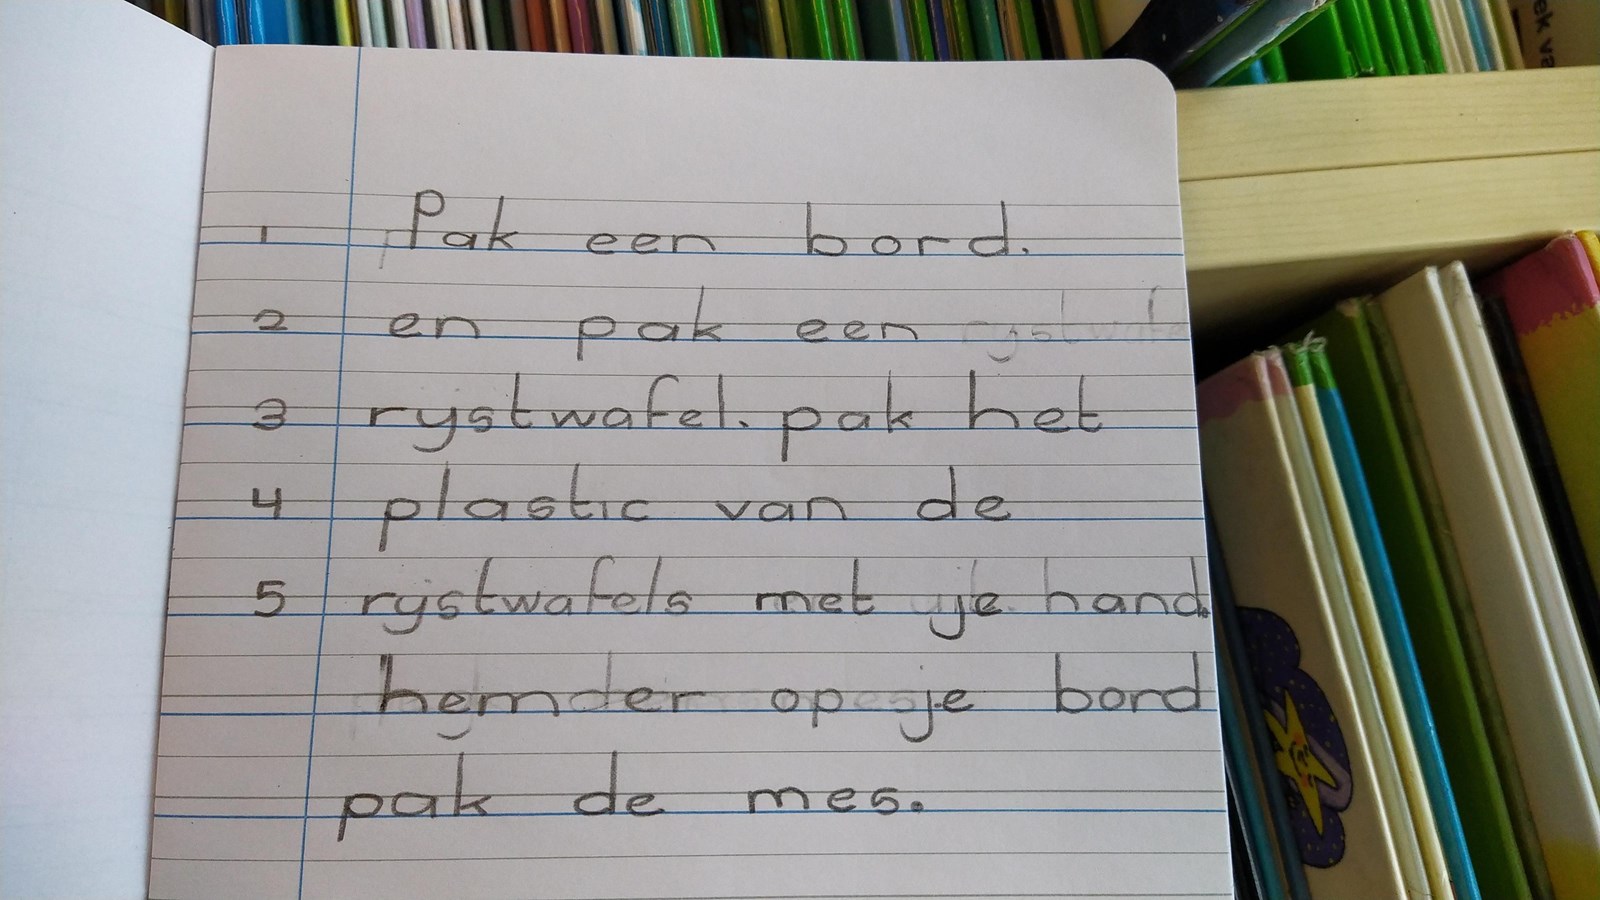 1 Pak een bord.
2 en pak een
3 rystwafel. pak het
4 plastic van de
5 rystwafels met je hand.
hemder op je bord
pak de mes.